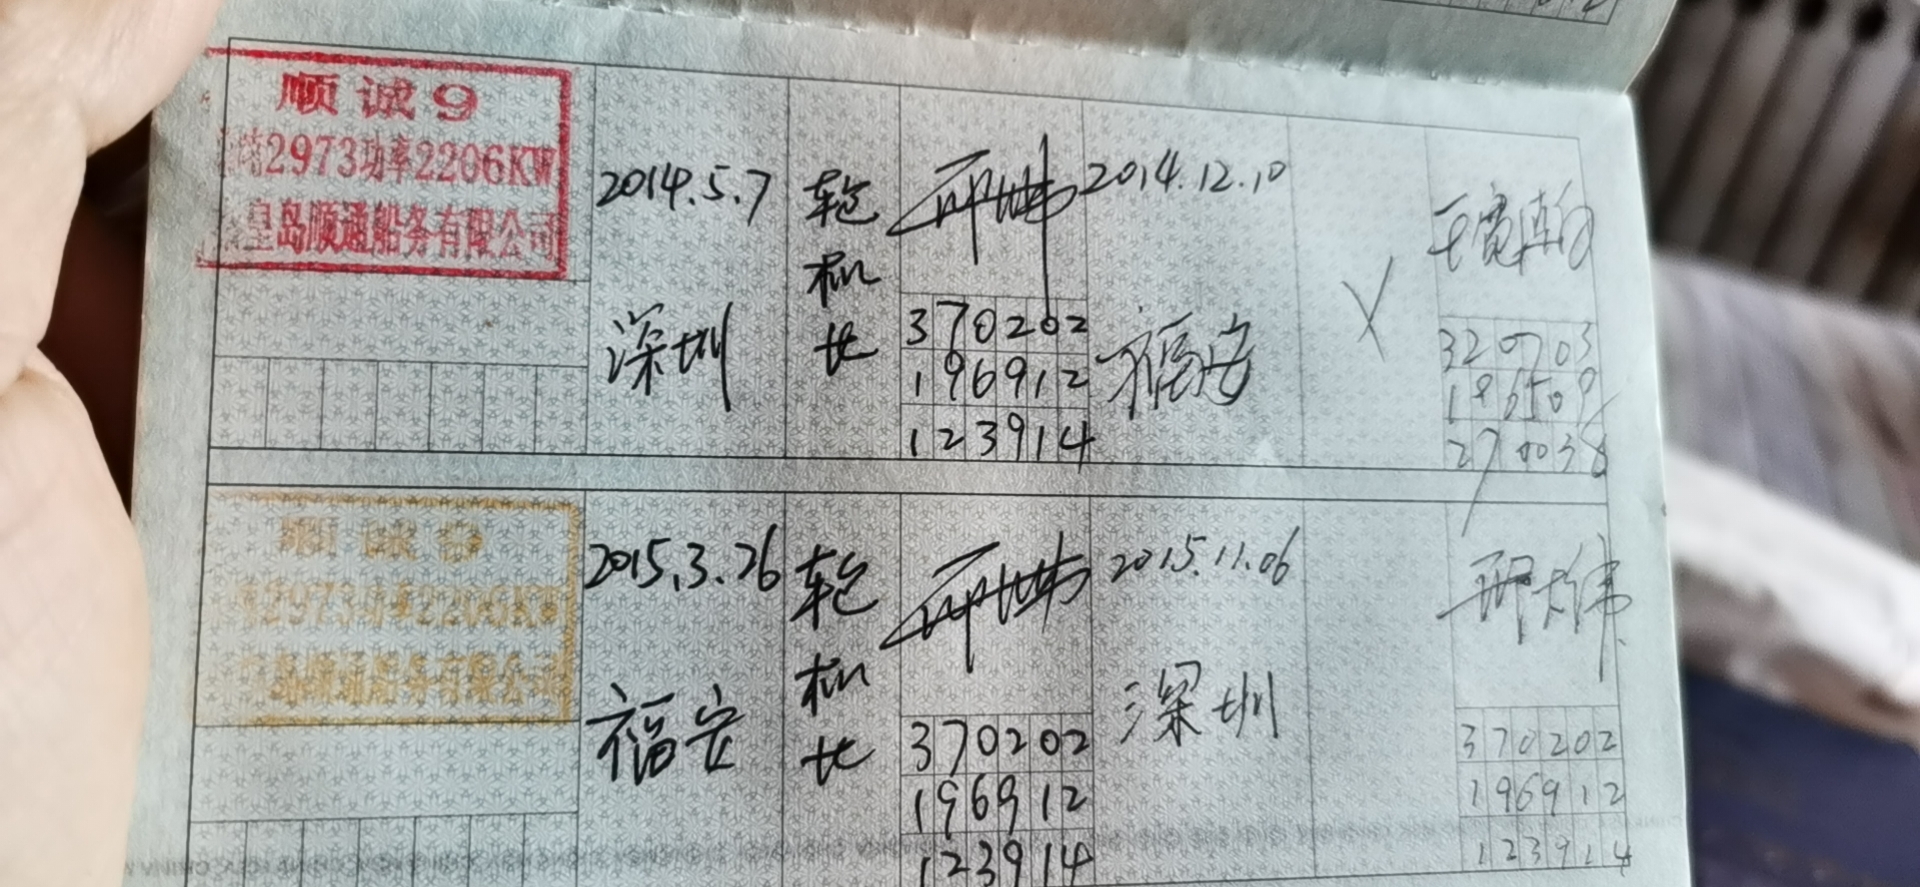 顺诚9
2973功率2206KW
皇岛顺通船务有限公司
2014.5.7
深圳
轮
机
长
370202
196912
123914
2014.12.10
福安
X
320703
2973功率2206KW
岛顺通船务有限公司
2015.3.26
福安
轮
机
长
370202
196912
123914
2015.11.06
深圳
370202
196912
123914